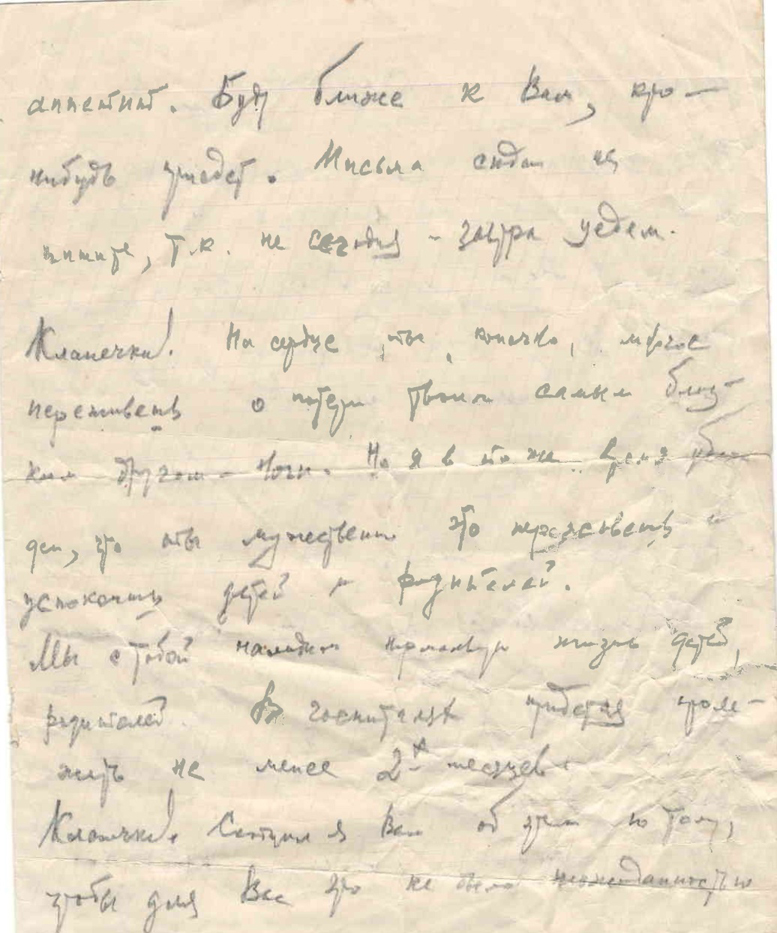 аппетит. Буду ближе к Вам, кто-
нибудь приедет. Письма сюда не
пишите, т.к. не сегодня - завтра уедем.
Клапочка! На сердце ты, конечно, многое
переживешь о потери твоим самым близ-
ким другом - Ноги. Но я в то же время убеж-
ден, что ты мужественно это переживешь и
успокоишь детей и родителей.
Мы с тобой наладим нормальную жизнь детей,
родителей. В госпиталях придется проле-
жать не менее 2-х месяцев.
Клапочка! Сообщил я Вам об этом по тому,
чтобы для Вас это не было неожиданностью